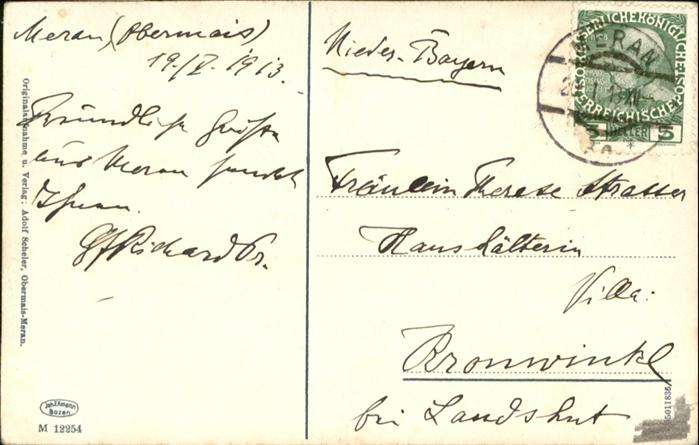 Meran (Obermais)
19./V. 1913.
Freundliche Grüße
aus Meran sendet
Ihnen
Gf Richard Pr.
Nieder-Bayern
KAISERLICHE KÖNIGLICHE
ÖSTERREICHISCHE
5 HELLER 5
MERAN
Fräulein Therese Strasser
Haushälterin
Villa:
Bronwinkl
bei Landshut
Originalaufnahme u. Verlag: Adolf Scheler, Obermais-Meran.
Joh. F. Amonn
Bozen
M 12254